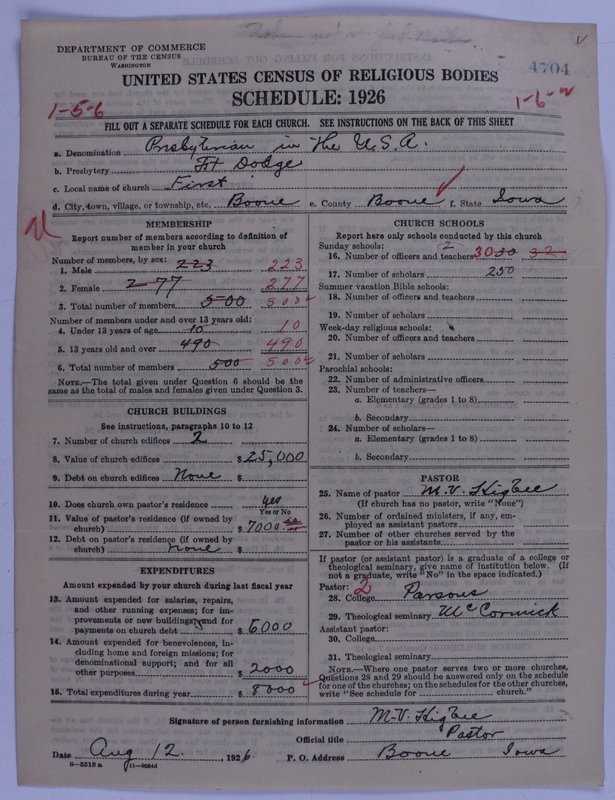 DEPARTMENT OF COMMERCE
BUREAU OF THE CENSUS
WASHINGTON
4704
UNITED STATES CENSUS OF RELIGIOUS BODIES
SCHEDULE: 1926
1-5-6
1-6-
FILL OUT A SEPARATE SCHEDULE FOR EACH CHURCH. SEE INSTRUCTIONS ON THE BACK OF THIS SHEET
a. Denomination Presbyterian in the U.S.A.
b. Presbytery Ft Dodge
c. Local name of church First
d. City, town, village, or township, etc. Boone e. County Boone f. State Iowa
MEMBERSHIP
Report number of members according to definition of
member in your church
Number of members, by sex:
1. Male 223 223
2. Female 277 277
3. Total number of members 500 500
Number of members under and over 13 years old:
4. Under 13 years of age 10 10
5. 13 years old and over 490 490
6. Total number of members 500 500
NOTE.—The total given under Question 6 should be the
same as the total of males and females given under Question 3.
CHURCH BUILDINGS
See instructions, paragraphs 10 to 12
7. Number of church edifices 2
8. Value of church edifices $25,000
9. Debt on church edifices None $
10. Does church own pastor's residence yes
Yes or No
11. Value of pastor's residence (if owned by
church) $7000.00
12. Debt on pastor's residence (if owned by
church) None $
EXPENDITURES
Amount expended by your church during last fiscal year
13. Amount expended for salaries, repairs,
and other running expenses; for im-
provements or new buildings; and for
payments on church debt $6000
14. Amount expended for benevolences, in-
cluding home and foreign missions; for
denominational support; and for all
other purposes $2000
15. Total expenditures during year $8000
CHURCH SCHOOLS
Report here only schools conducted by this church
Sunday schools:
16. Number of officers and teachers 30 30 32
17. Number of scholars 250
Summer vacation Bible schools:
18. Number of officers and teachers
19. Number of scholars
Week-day religious schools:
20. Number of officers and teachers
21. Number of scholars
Parochial schools:
22. Number of administrative officers
23. Number of teachers—
a. Elementary (grades 1 to 8)
b. Secondary
24. Number of scholars—
a. Elementary (grades 1 to 8)
b. Secondary
PASTOR
25. Name of pastor M.V. Higbee
(If church has no pastor, write "None")
26. Number of ordained ministers, if any, em-
ployed as assistant pastors
27. Number of other churches served by the
pastor or his assistants
If pastor (or assistant pastor) is a graduate of a college or
theological seminary, give name of institution below. (If
not a graduate, write "No" in the space indicated.)
Pastor: 2
28. College Parsons
29. Theological seminary McCormick
Assistant pastor:
30. College
31. Theological seminary
NOTE.—Where one pastor serves two or more churches,
Questions 28 and 29 should be answered only on the schedule
for one of the churches; on the schedules for the other churches,
write "See schedule for church."
Signature of person furnishing information M.V. Higbee
Official title Pastor
Date Aug 12, 1926 P. O. Address Boone Iowa
8-5518 a